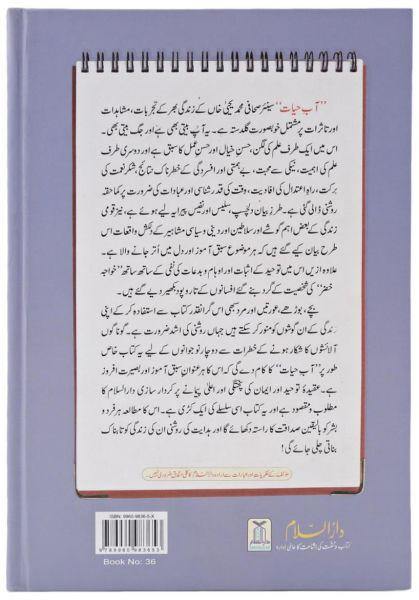 ”آبِ حیات“ سینئر صحافی محمد یحییٰ خاں کے زندگی بھر کے تجربات، مشاہدات
اور تاثرات پر مشتمل خوبصورت گلدستہ ہے۔ یہ آپ بیتی بھی ہے اور جگ بیتی بھی۔
اس میں ایک طرف علم کی لگن، حسنِ خیال اور حسنِ عمل کا سبق ہے اور دوسری طرف
علم کی اہمیت، نیکی سے محبت، بے ہمتی اور افسردگی کے خطرناک نتائج، شکرِ نعمت کی
برکت، راہِ اعتدال کی افادیت، وقت کی قدر شناسی اور عبادات کی ضرورت پر کماحقہ
روشنی ڈالی گئی ہے۔ طرزِ بیان دلچسپ، سلیس اور نفیس پیرایہ لیے ہوئے ہے، نیز قومی
زندگی کے بعض اہم گوشے اور سلاطین اور دینی و سیاسی مشاہیر کے دلکش واقعات اس
طرح بیان کیے گئے ہیں کہ ہر موضوع سبق آموز اور دل میں اُتر جانے والا ہے۔
علاوہ ازیں اس میں توحید کے اثبات اور اوہام و بدعات کی نفی کے ساتھ ساتھ ”خواجہ
خضر“ کی شخصیت کے گرد بُنے گئے افسانوں کے تار و پود بکھیر دیے گئے ہیں۔
بچے، بوڑھے، عورتیں اور مرد سبھی اس گرانقدر کتاب سے استفادہ کر کے اپنی
زندگی کے ان گوشوں کو منور کر سکتے ہیں جہاں روشنی کی اشد ضرورت ہے۔ گوناگوں
آلائشوں کا شکار ہونے کے خطرات سے دوچار نوجوانوں کے لیے یہ کتاب خاص
طور پر ”آبِ حیات“ کا کام دے گی کہ اس کا ہر عنوان سبق آموز اور بصیرت افروز
ہے۔ عقیدۂ توحید اور ایمان کی پختگی اور اعلیٰ پیمانے پر کردار سازی دارالسلام کا
مطلوب و مقصود ہے اور یہ کتاب اسی سلسلے کی ایک کڑی ہے۔ اس کا مطالعہ ہر فرد و
بشر کو بالیقین صداقت کا راستہ دکھائے گا اور ہدایت کی روشنی ان کی زندگی کو تابناک
بناتی چلی جائے گی!
مؤلف کے نظریات اور عبارات سے ادارہ دارالسلام کا کلی اتفاق ضروری نہیں۔
ISBN: 9960-9836-5-X
9789960983653
Book No: 36
دارالسلام
کتاب و سنت کی اشاعت کا عالمی ادارہ